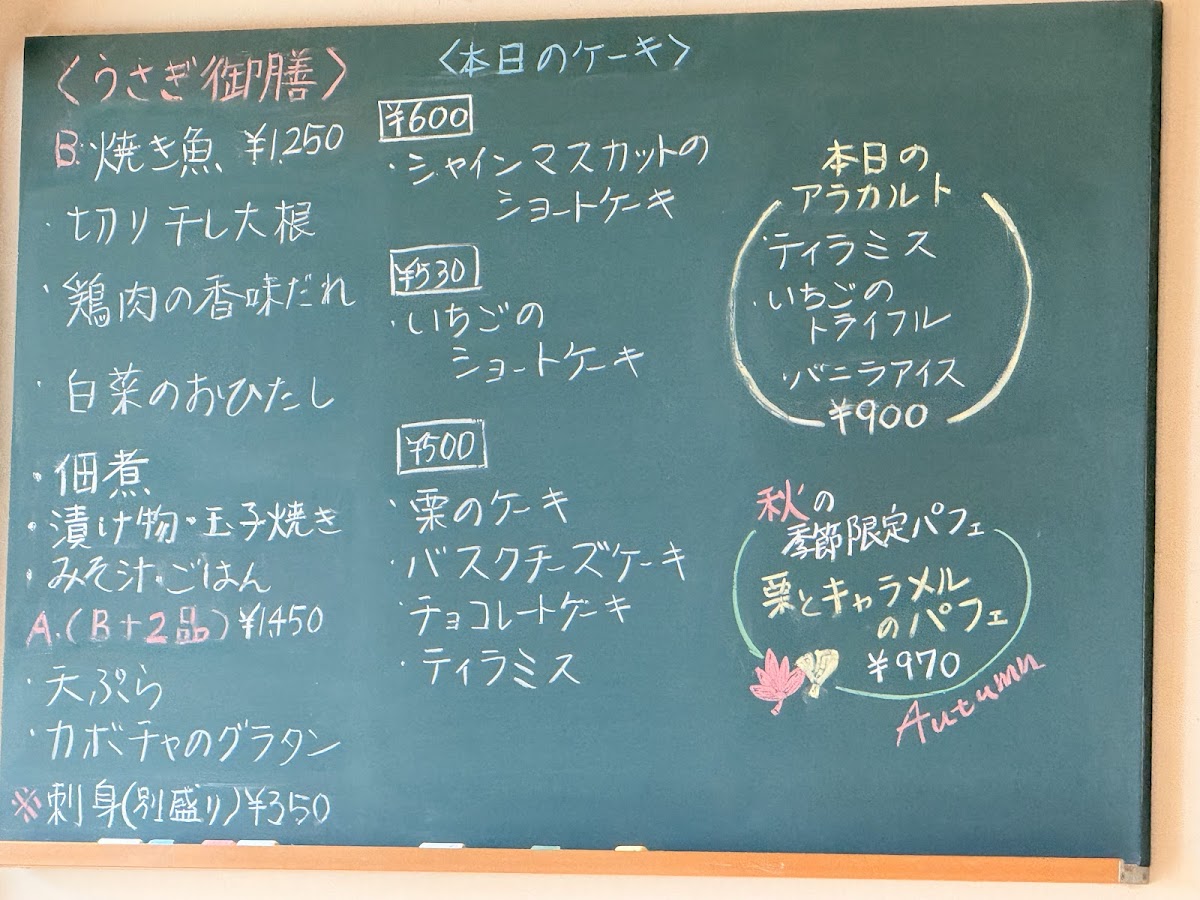 〈うさぎ御膳〉
B.焼き魚 ¥1,250
・切り干し大根
・鶏肉の香味だれ
・白菜のおひたし
・佃煮
・漬け物・玉子焼き
・みそ汁・ごはん
A.(B+2品)¥1,450
・天ぷら
・カボチャのグラタン
※刺身(別盛り)¥350
〈本日のケーキ〉
¥600
・シャインマスカットの
ショートケーキ
¥530
・いちごの
ショートケーキ
¥500
・栗のケーキ
・バスクチーズケーキ
・チョコレートケーキ
・ティラミス
本日の
アラカルト
・ティラミス
・いちごの
トライフル
・バニラアイス
¥900
秋の
季節限定パフェ
栗とキャラメル
のパフェ
¥970
Autumn